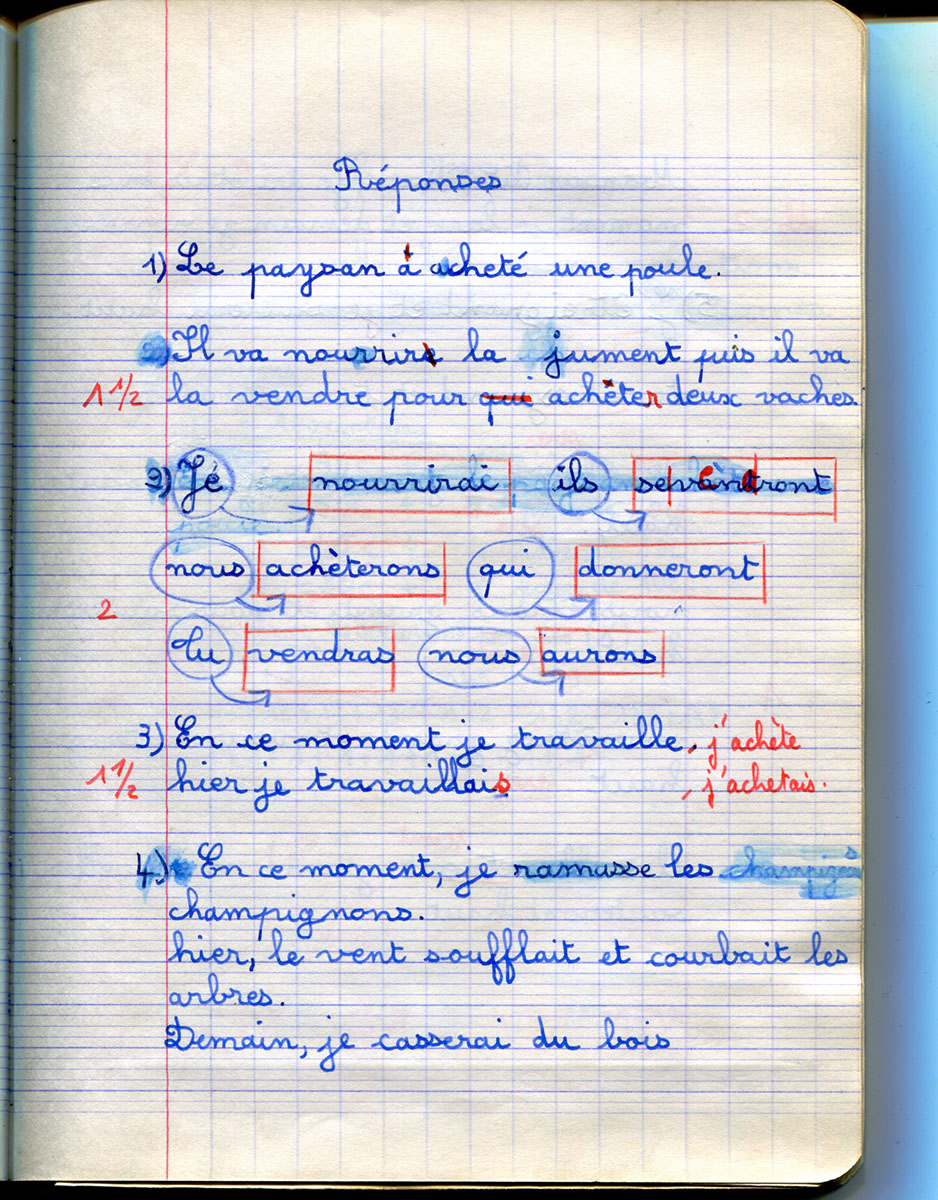 Réponses
1) Le paysan a acheté une poule.
Il va nourrir la jument puis il va
1 1/2 la vendre pour qui achèter deux vaches
2) Je nourrirai ils
nous achèterons qui donneront
2
tu vendras nous aurons
3) En ce moment je travaille, j'achète
1 1/2 hier je travaillais, j'achetais.
4) En ce moment, je ramasse les champignons
champignons.
hier, le vent soufflait et courbait les
arbres.
Demain, je casserai du bois